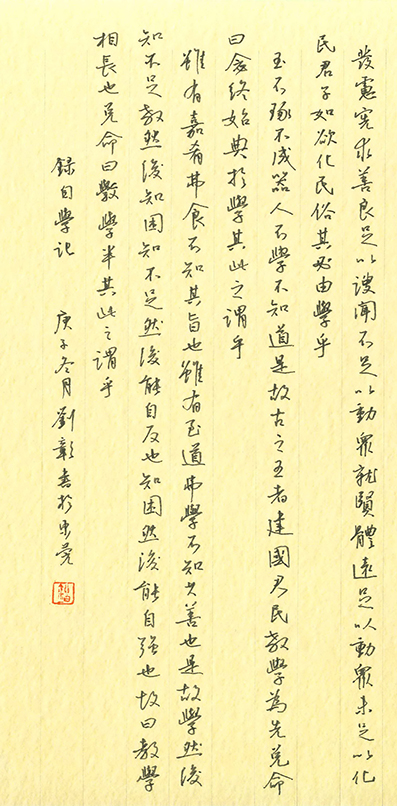 發慮憲求善良足以謏聞不足以動眾就賢體遠足以動眾未足以化
民君子如欲化民俗其必由學乎
玉不琢不成器人不學不知道是故古之王者建國君民教學為先兌命
曰念終始典於學其此之謂乎
雖有嘉肴弗食不知其旨也雖有至道弗學不知其善也是故學然後
知不足教然後知困知不足然後能自反也知困然後能自強也故曰教學
相長也兌命曰斆學半其此之謂乎
錄自學記 庚子冬月劉彰書於東莞